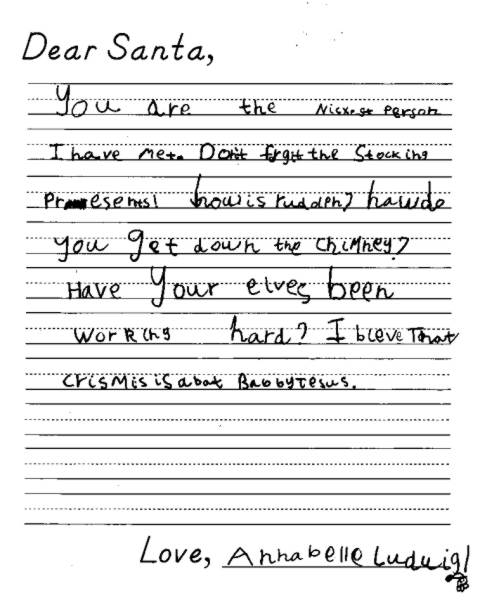 Dear Santa,
You are the Nickest Person
I have met. Don't frgit the Stocking
Presents! how is rudolph? hawde
you get down the chimney?
Have your elves been
working hard? I bleve That
crismis is abat Babby Jesus.
Love, Annabelle Ludwig